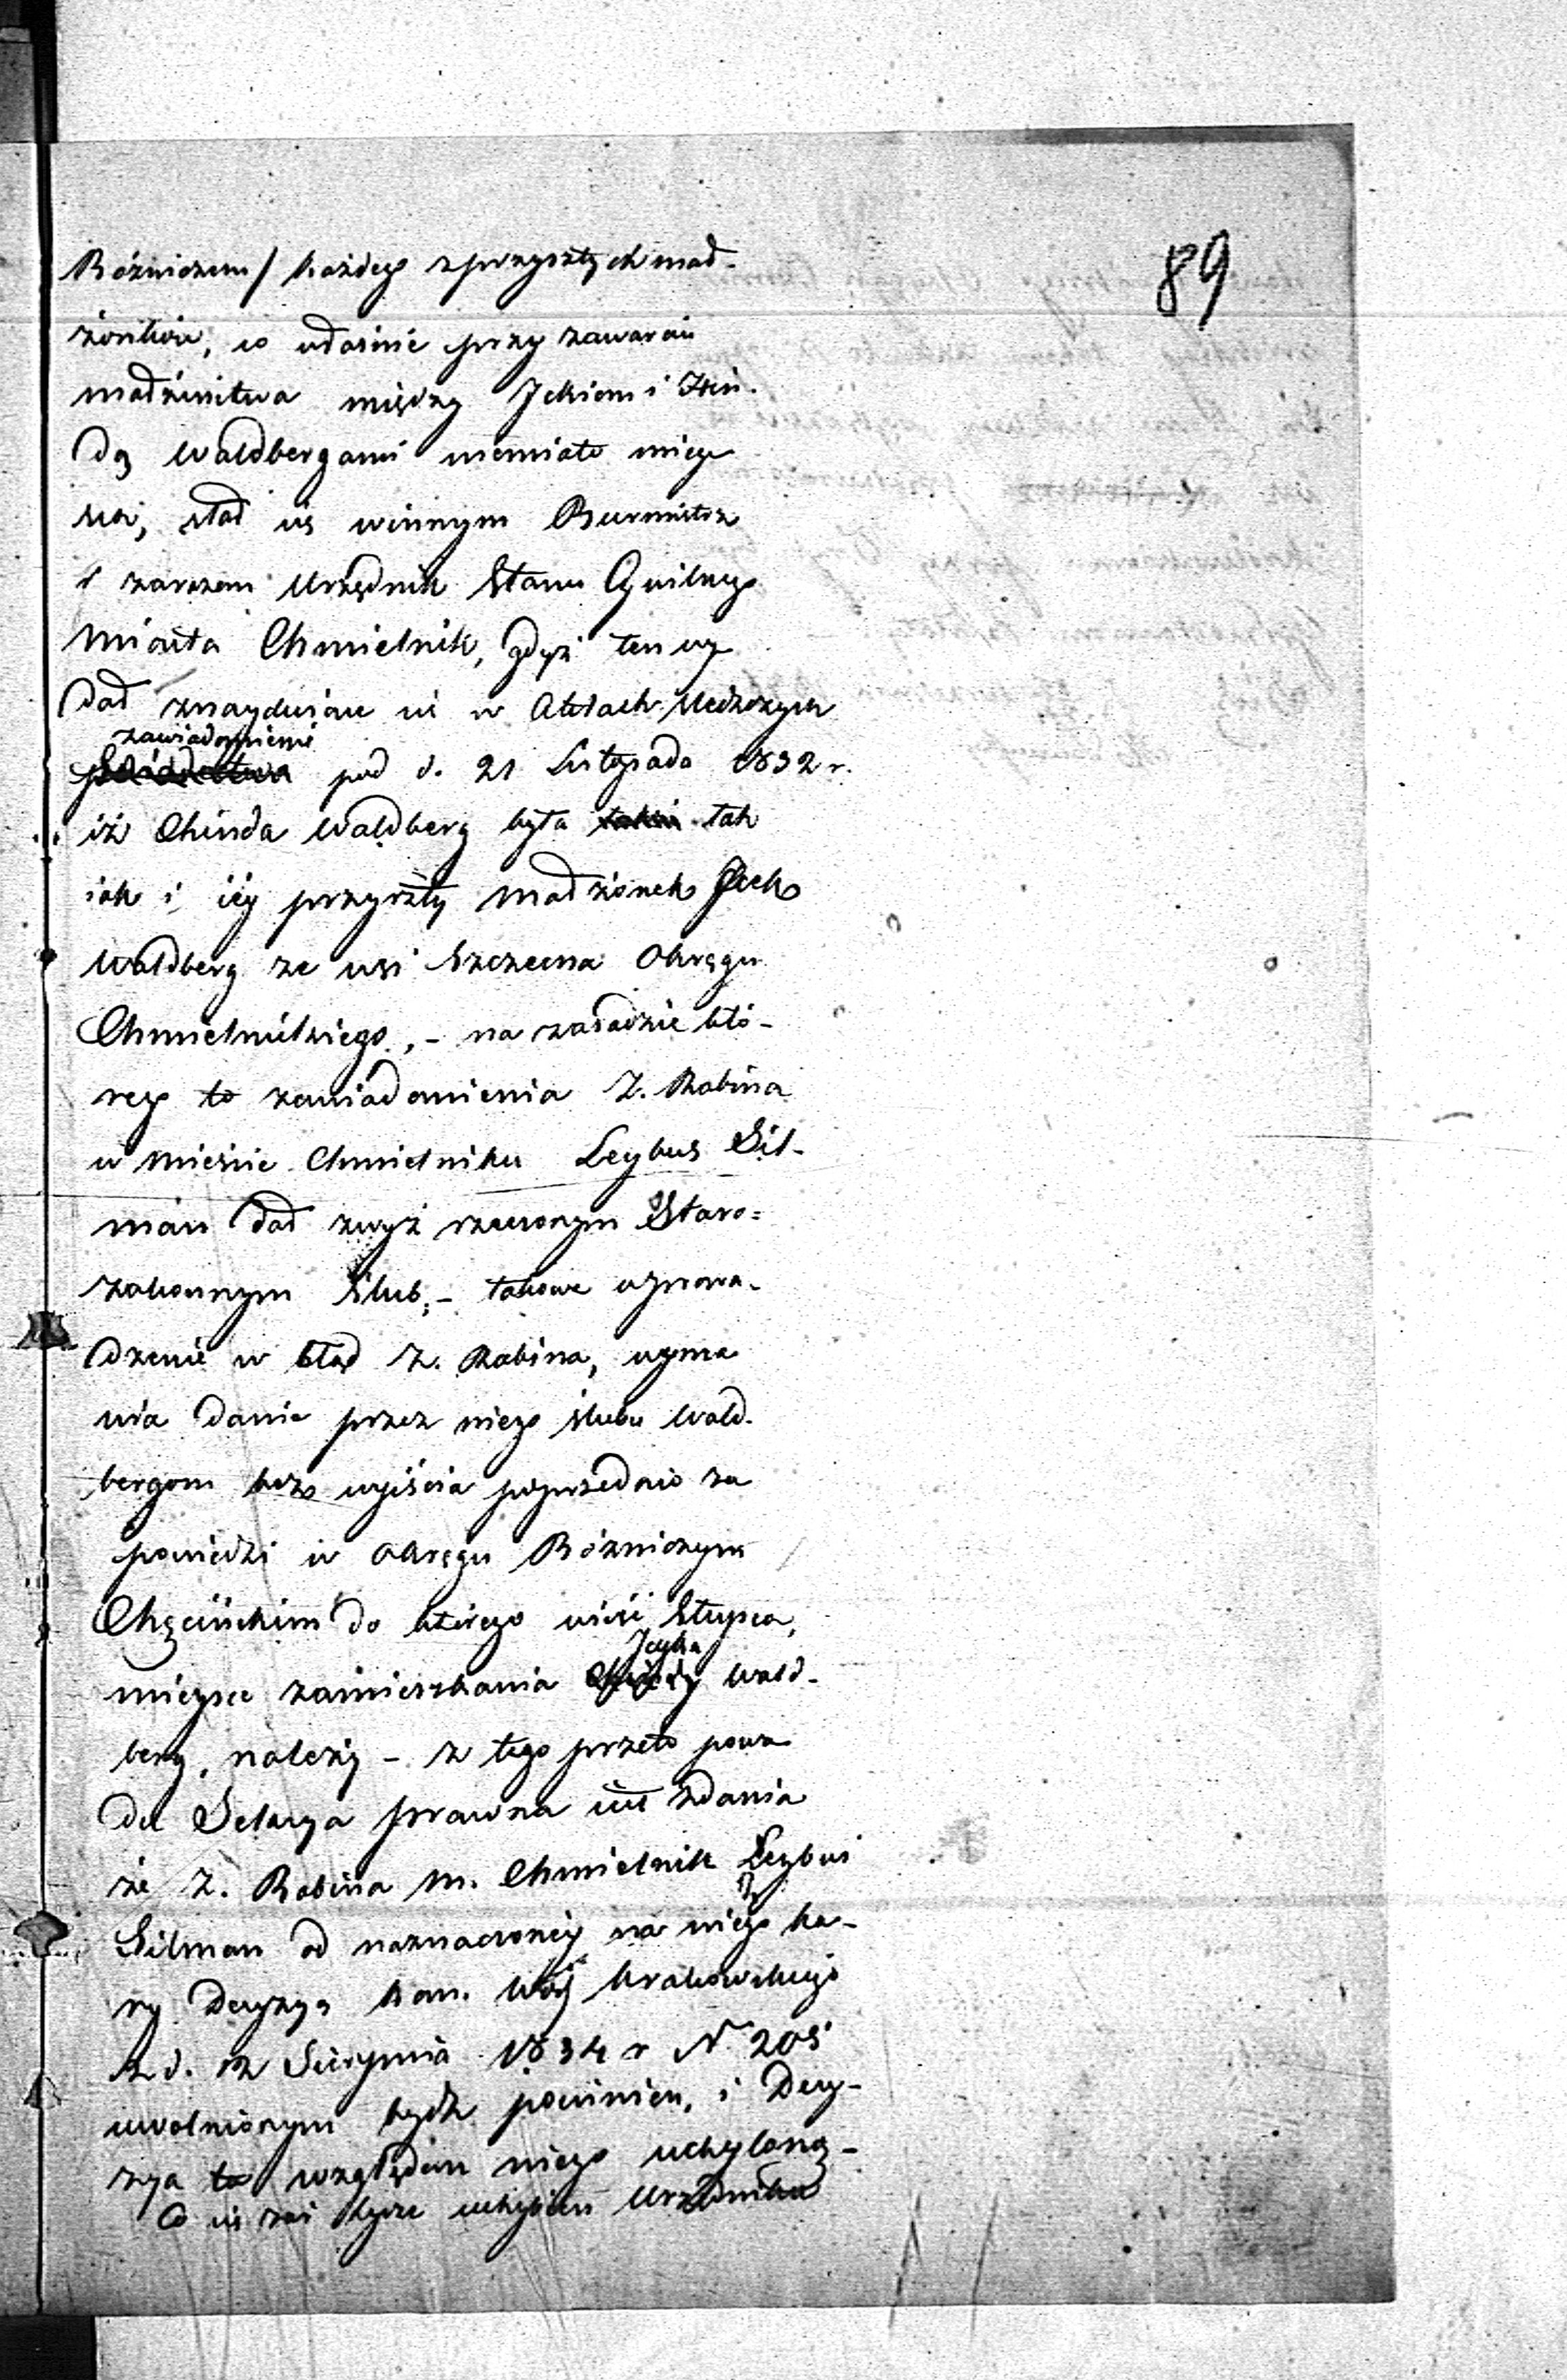 89
Bóżniczem/ każdego z przyszłych mał-
żonków, co właśnie przy zawarciu
małżeństwa między Ickiem i Hin-
dą Waldbergami niemiało miey-
sca, stał się winnym Burmistrz
i zarazem Urzędnik Stanu Cywilnego
Miasta Chmielnik, gdyż ten wy
dał znayduiące się w Aktach
zawiadomienie
pod d. 21 Listopada 1832 r.
iż Chinda Waldberg była tak
iak i iéy przyszły małżonek Jcek
Waldberg ze wsi Szczecna Okręgu
Chmielnickiego, - na zasadzie któ-
rego to zawiadomienia Z. Rabina
w mieście Chmielniku Leybus Sil-
man dał zwyż rzeczonym Staro=
zakonnym Slub, - takowe wprowa-
dzenie w błąd Z. Rabina, uspra
wia danie przez niego ślubu Wald-
bergom bez wyiścia poprzednio za
powiedzi w Okręgu Bóżniczym
Chęcińskim do którego wieś Słupca,
Jcyka
mieysce zamieszkania Wald-
berg, należy - z tego przeto powo
du Sekcya prawna iest zdania
że Z. Rabina m. Chmielnik Leybus
Silman od naznaczoney na niego ka-
ry Decyzyą Kom. Woj Krakowskiego
z d. 12 Sierpnia 1834 r N. 205
uwolnionym bydź powinien, i Decy-
zya ta względem niego uchyloną -
Co się zaś tycze uchybień Urzędnika